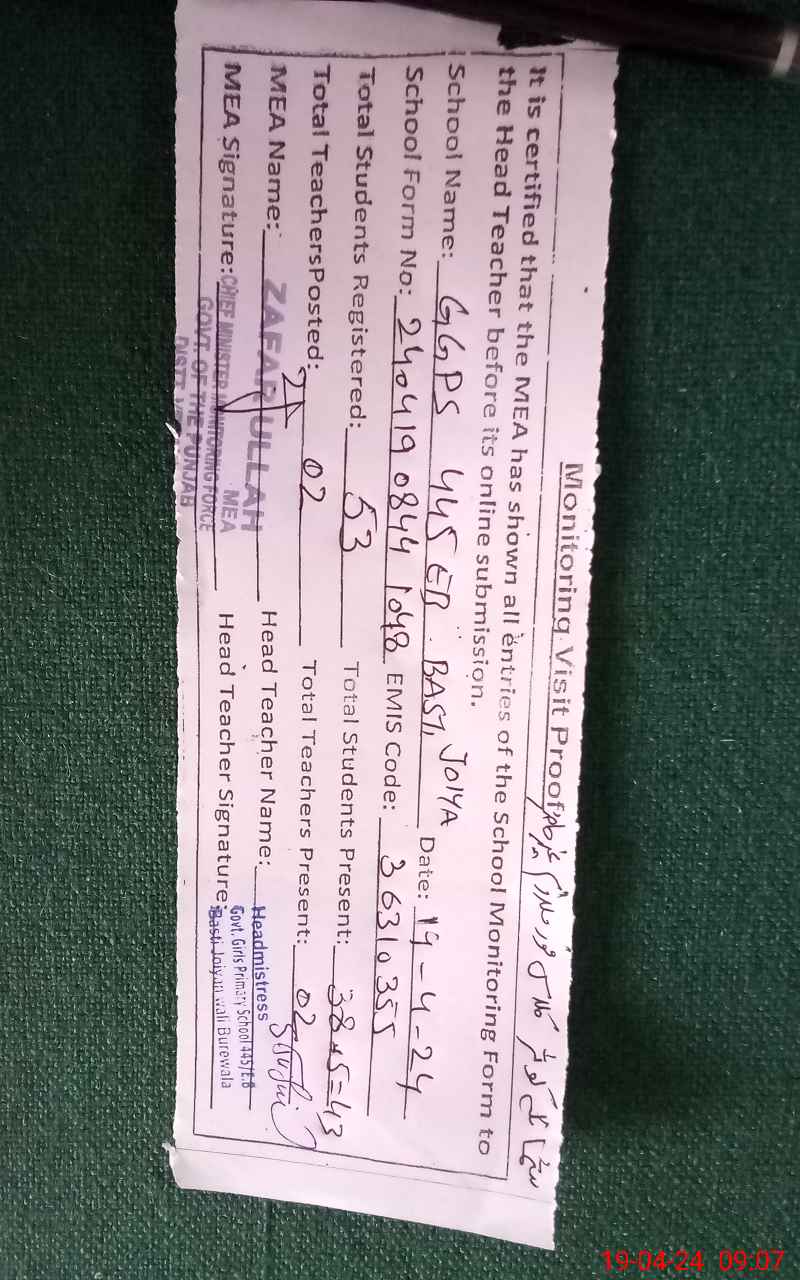 Monitoring Visit Proof
It is certified that the MEA has shown all entries of the School Monitoring Form to
the Head Teacher before its online submission.
School Name: GGPS 445 EB. BASTI JOIYA Date: 19-4-24
School Form No: 240419 0844 1048 EMIS Code: 36310355
Total Students Registered: 53 Total Students Present: 38+5=43
Total TeachersPosted: 02 Total Teachers Present: 02
MEA Name: ZAFAR ULLAH Head Teacher Name: Headmistress
MEA
Govt. Girls Primary School 445/E.B
MEA Signature: CHIEF MINISTER MONITORING FORCE Head Teacher Signature: Basti Joiyan wali Burewala
GOVT. OF THE PUNJAB
DISTT
19-04-24 09:07